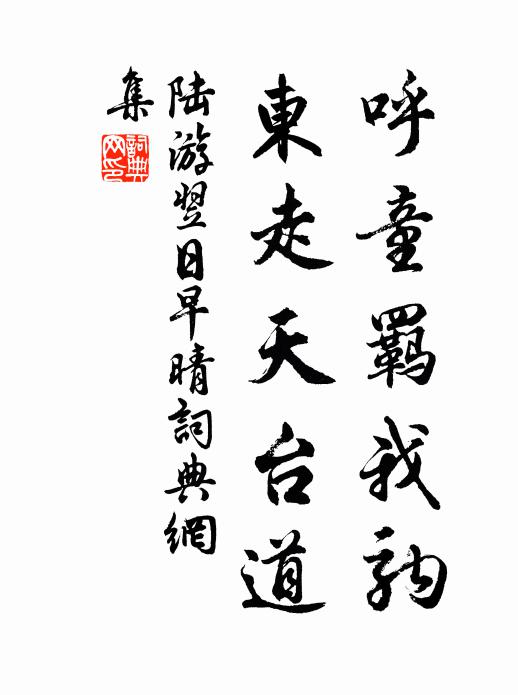 呼童羈我駒
東走天台道
陸游翌日早晴詞典網
集
詞典
网印